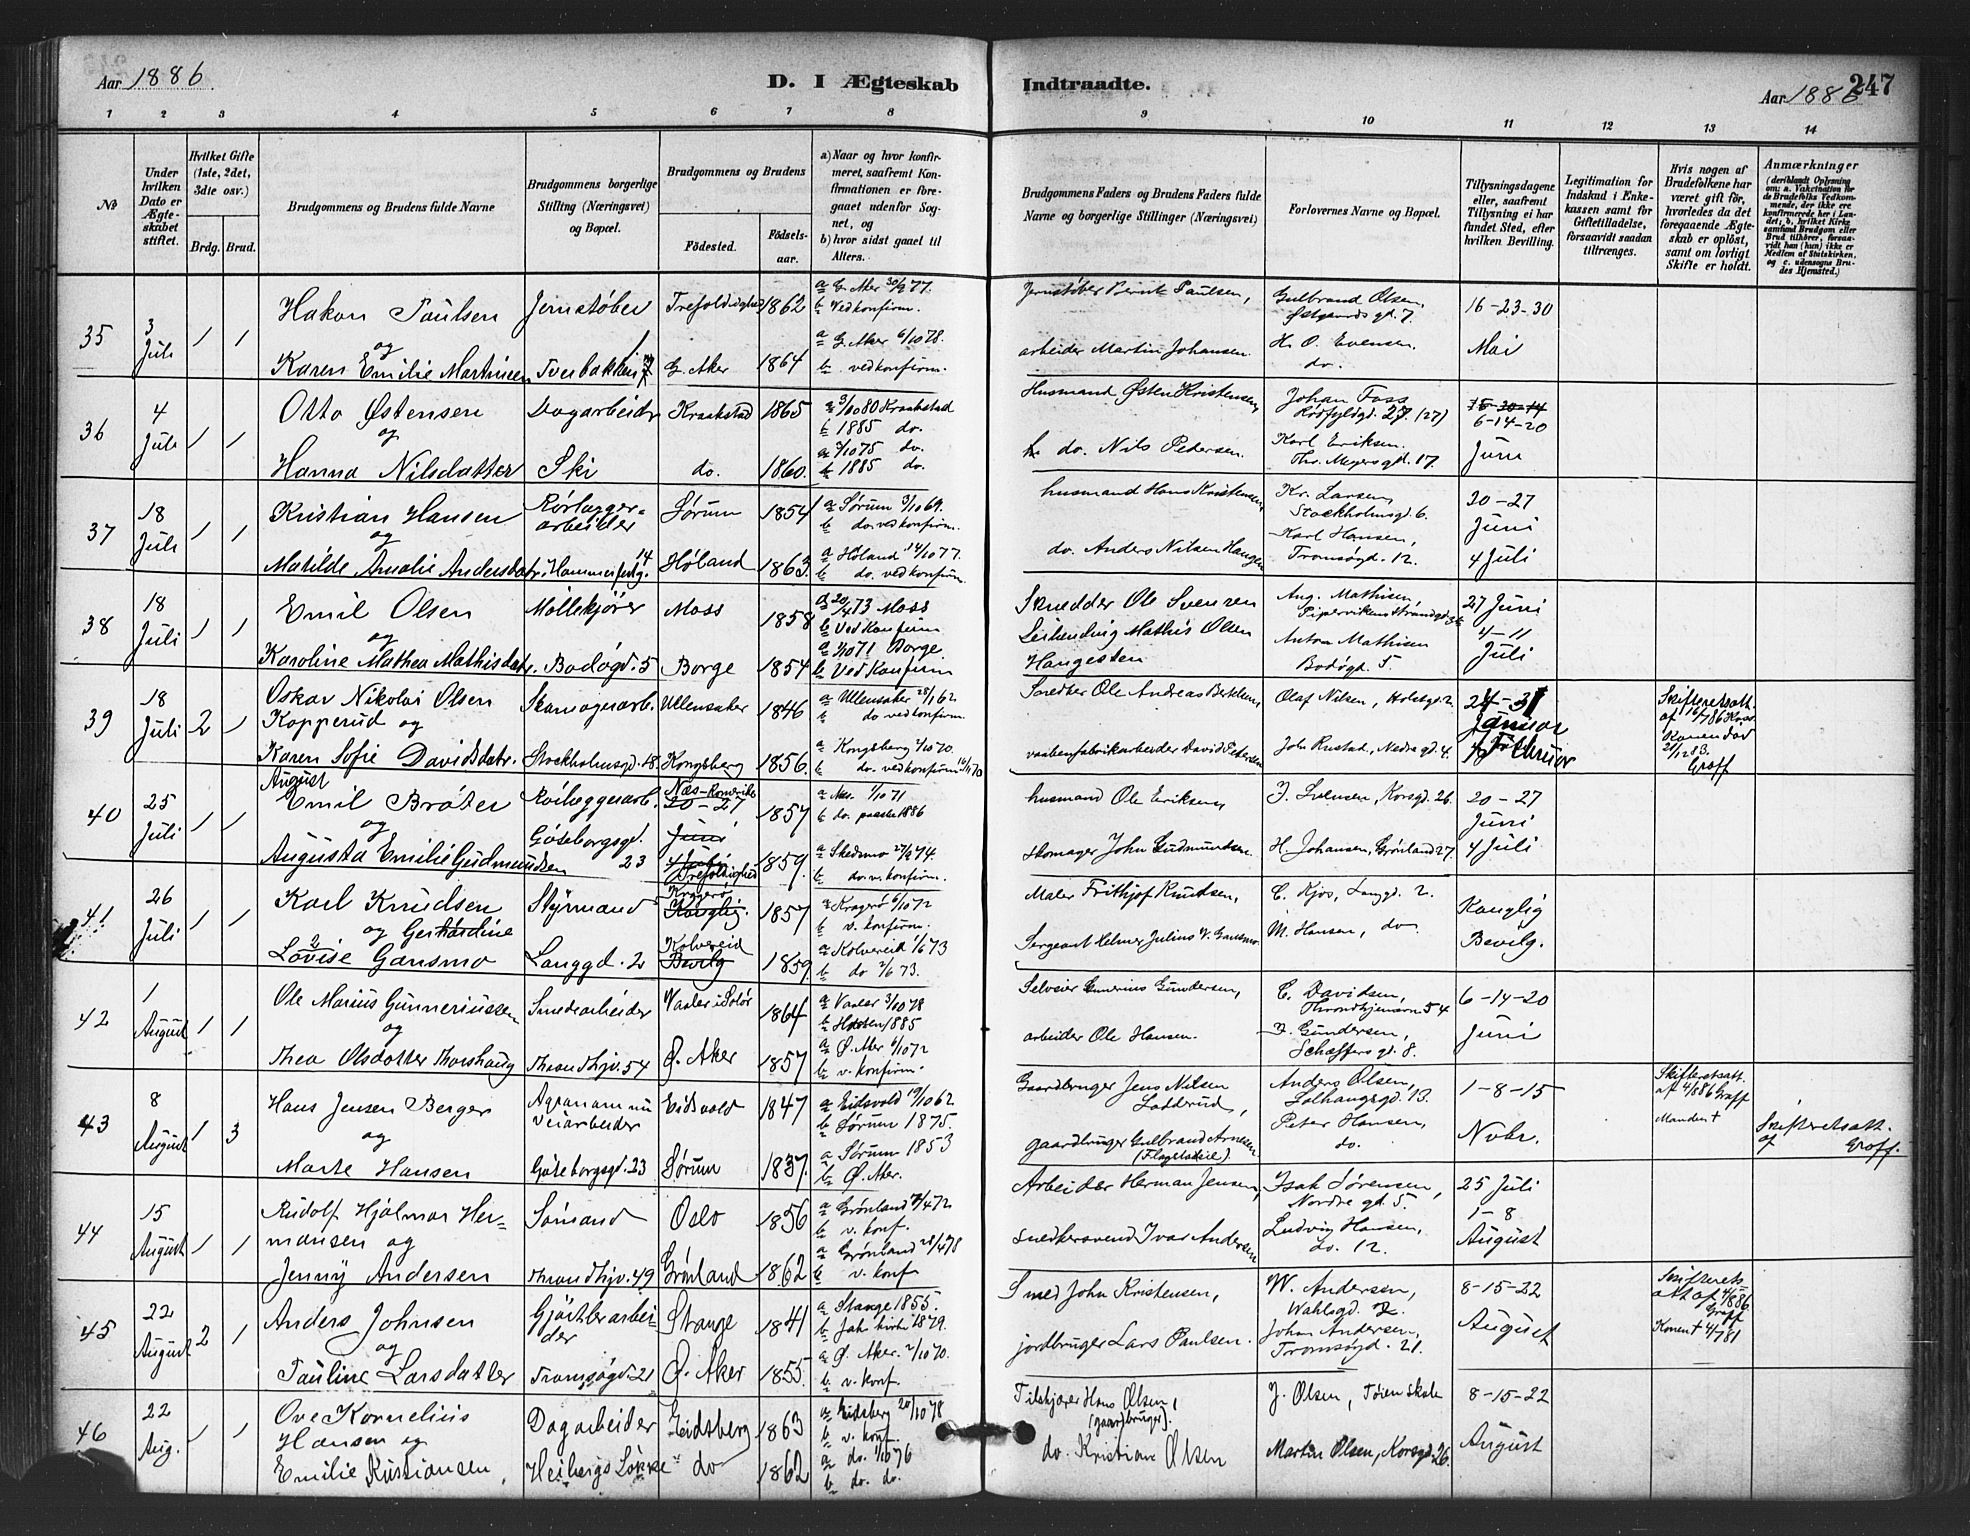 Aar 1886
D. I Ægteskab
Indtraadte.
Aar 1886
247
1 2 3 4 5 6 7 8
9 10 11 12 13 14
No
Under hvilken Dato er Ægteskabet stiftet.
Hvilket Gifte (1ste, 2det, 3die osv.)
Brdg. Brud.
Brudgommens og Brudens fulde Navne
Brudgommens borgerlige Stilling (Næringsvei) og Bopæl.
Brudgommens og Brudens
Födested.
Födselsaar.
a) Naar og hvor konfirmeret, saafremt Konfirmationen er foregaaet udenfor Sognet, og
b) hvor sidst gaaet til Alters.
Brudgommens Faders og Brudens Faders fulde Navne og borgerlige Stillinger (Næringsvei)
Forlovernes Navne og Bopæl.
Tillysningsdagene eller, saafremt Tillysning ei har fundet Sted, efter hvilken Bevilling.
Legitimation for Indskud i Enkekassen samt for Giftetilladelse, forsaavidt saadan tiltrænges.
Hvis nogen af Brudefolkene har været gift før, hvorledes da det foregaaende Ægteskab er oplöst, samt om lovligt Skifte er holdt.
Anmærkninger
(deriblandt Oplysning om: a. Vakcination for de Brudefolks Vedkommende, der ikke ere konfirmerede her i Landet; b. hvilket Kirkesamfund Brudgom eller Brud tilhører, forsaavidt han (hun) ikke er Medlem af Statskirken, og c. udensogns Brudes Hjemsted.)
35
3 Juli
1 1
Hakon Paulsen
og
Karen Emilie Martinsen
Jernstøber
Tverbakken 7
Trefoldighed 1862
G. Aker 1864
a G. Aker 30/9 77.
b Ved konfirm.
a G. Aker 6/10 78.
b ved konfirm.
Jernstøber Bernt Paulsen,
arbeider Martin Johansen.
Gulbrand Olsen,
Østgaards gd. 7.
H. O. Evensen.
do.
16-23-30
Mai
36
4 Juli
1 1
Otto Østensen
og
Hanna Nilsdatter
Dagarbeider
Ski
Kraakstad 1865
do. 1860.
a 3/10 80 Kraakstad
b 1885 do.
a 7/10 75 do.
b 1885 do.
Husmand Østen Kristensen,
do. Nils Pedersen.
Johan Foss
Rødfyldgd. 27. (27)
Karl Eriksen.
Thr. Meyersgd. 17.
6-14-20
Juni
37
18 Juli
1 1
Kristian Hansen
og
Matilde Amalie Andersdatr.
Rørlægger-
arbeider
Hammerfestg. 14
Sørum 1854
Høland 1863.
a Sørum 3/10 69.
b do. ved konfirm.
a Høland 14/10 77.
b do. ved konfirm.
husmand Hans Kristensen
do. Anders Nilsen Haugen
Kr. Larsen,
Stockholmsgd. 6.
Karl Hansen,
Tromsøgd. 12.
20-27
Juni
4 Juli
38
18 Juli
1 1
Emil Olsen
og
Karoline Mathea Mathisdatr.
Møllekjører
Bodøgd. 5
Moss 1858
Borge 1854
a 20/4 73 Moss
b Ved Konfirm
a 1/10 71 Borge
b Ved Konfirm
Skrædder Ole Svensen
Leilending Mathis Olsen
Haugesten
Aug. Mathisen,
Pipervikens Strandgd. 36
Anton Mathisen
Bodøgt. 5.
27 Juni
4-11
Juli
39
18 Juli
2 1
Oskar Nikolai Olsen
Kopperud og
Karen Sofie Davidsdatr.
Skomagerarb.
Stockholmsgd. 18.
Ullensaker 1846
Kongsberg 1856.
a Ullensaker 28/1 62
b do ved konfirm.
a Kongsberg 2/10 70.
b do. ved konfirm
Snedker Ole Andreas Bertelsen,
vaabenfabrikarbeider David Petersen
Olaf Nilsen, Holstgd. 2.
Joh. Rustad, Nedregd. 4.
24-31
Januar
7 Februar
Skifteretsatt.
Konen død
21/12 83.
Graff
40
25 Juli
1 1
August
Emil Brøter
og
Augusta Emilie Gudmundsen
Rørlæggerarb.
Göteborgsgd.
23
Næs-Romerike
20-27
Juni
Trefoldighed
1857
1859.
a Nes. 1/10 71
b do. paaske 1886
a Skedsmo 27/9 74.
b do. v. konfirm.
husmand Ole Eriksen,
skomager John Gudmundsen.
J. Svensen, Korsgd. 26.
H. Johansen, Grønland 27.
20-27
Juni
4 Juli
41
26 Juli
1 1
Karl Knudsen
og Gerhardine
Lovise Gansmo
Styrmand
Langgd. 2
Kragerø
Konglig. 1857
Kolvereid
Bevilg 1859.
a Kragerø 6/10 72
b v. konfirm.
a Kolvereid 1/6 73
b do 2/6 73.
Maler Frithjof Knudsen,
Sergeant Helmer Julius V. Gansmo.
C. Kjos, Langgd. 2.
M. Hansen, do.
Konglig
Bevilg.
42
1 August
1 1
Ole Marius Gunneriussen
og
Thea Olsdatter Thorshaug
Smedarbeider
Throndhjv. 54
Vaaler i Solør 1864
Ø. Aker 1857
a Vaaler 3/10 78
b Hofsen 1885
a Ø. Aker 6/10 72
b v. konfirm.
Selveier Gunerius Gundersen,
arbeider Ole Hansen.
C. Davidsen,
Throndhjemsvn 54
J. Gundersen,
Schæffersgd. 8.
6-14-20
Juni
43
8 August
1 3
Hans Jensen Berger
og
Marte Hansen
Veiarbeider
Göteborgsgd. 23
Eidsvold 1847
Sørum 1837.
a Eidsvold 19/10 62
b Sørum 1875.
a Sørum 1853
b Ø. Aker.
Gaardbruger Jens Nilsen
Lodderud,
gaardbruger Gulbrand Arnesen
(Flagetseie).
Anders Olsen,
Solhaugsgd. 13.
Peter Hansen,
do.
1-8-15
Novbr.
Skifteretsatt.
af 4/8 86 Graff
Manden †
Skifteretsatt.
af Graff.
44
15 August
1 1
Rudolf Hjalmar Her-
mansen og
Jenny Andersen
Sømand
Throndhjv. 49
Oslo 1856
Grønland 1862
a Grønland 7/4 72
b v. konf.
a Grønland 28/4 78
b v. konf
Arbeider Herman Jensen,
snedkersvend Ivar Andersen
Isak Sørensen,
Nordre gd. 5.
Ludvig Hansen,
do. 12.
25 Juli
1-8
August
45
22 August
2 1
Anders Johnsen
og
Pauline Larsdatter
Gjørtlerarbei-
der
Tromsøgd. 21
Stange 1841
Ø. Aker 1855.
a Stange 1855.
b Jak. kirke 1879.
a Ø. Aker. 2/10 70.
b v. konf.
Smed John Kristensen,
jordbruger Lars Paulsen.
W. Andersen,
Wahlsgd. 2.
Johan Andersen,
Tromsøgd. 21.
8-15-22
August
Skifterets-
att af 4/8 86
Graff
Konen † 4/7 81
46
22 Aug.
1 1
Ove Kornelius
Hansen og
Emilie Kristiansen,
Dagarbeider
Heibergs Løkke
Eidsberg 1863
do 1862
a Eidsberg 20/10 78
b v. konf.
a do. 1/10 76
b do. do.
Teleskjører Hans Olsen,
(gaardbruger).
do. Kristian Olsen
J. Olsen, Tøien skole
Martin Olsen, Korsgd. 26.
8-15-22
August